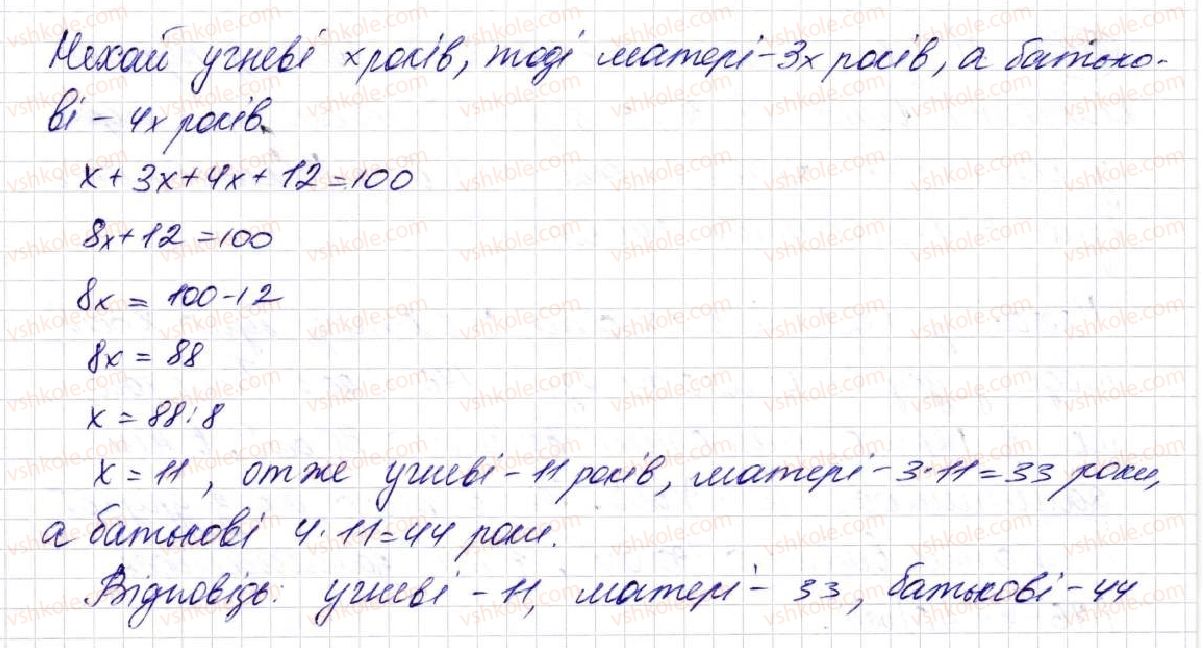 Нехай учневі х років, тоді матері - 3х років, а батько-
ві - 4х років.
х + 3х + 4х + 12 = 100
8х + 12 = 100
8х = 100 - 12
8х = 88
х = 88 : 8
х = 11, отже учневі - 11 років, матері - 3 · 11 = 33 роки,
а батькові 4 · 11 = 44 роки.
Відповідь: учневі - 11, матері - 33, батькові - 44